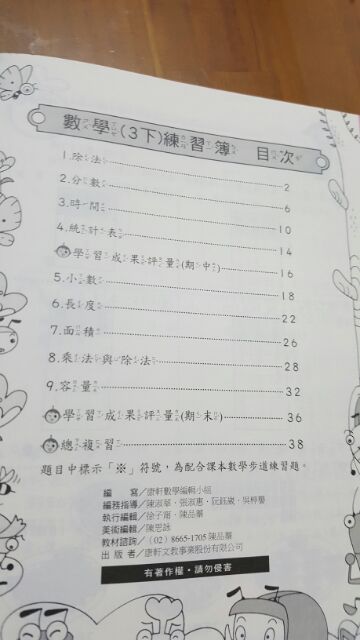 數學(3下)練習簿 目次
1.除法 2
2.分數 6
3.時間 10
4.統計表 14
學習成果評量(期中) 16
5.小數 18
6.長度 22
7.面積 26
8.乘法與除法 28
9.容量 32
學習成果評量(期末) 36
總複習 38
題目中標示「※」符號，為配合課本數學步道練習題。
編 寫／康軒數學編輯小組
編務指導／陳淑華、張淑惠、阮鈺崴、吳梓
執行編輯／徐子甯、陳品蓁
美術編輯／陳思詠
教材諮詢／(02) 8665-1705 陳品蓁
出 版 者／康軒文教事業股份有限公司
有著作權・請勿侵害